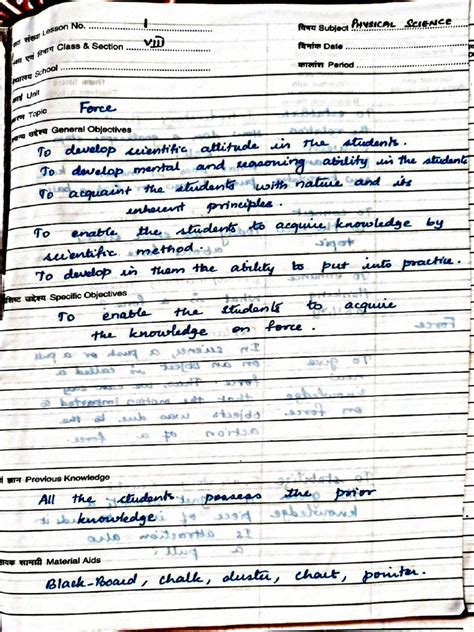 पाठ संख्या Lesson No. 1
विषय Subject PHYSICAL SCIENCE
कक्षा एवं विभाग Class & Section VIII
दिनांक Date
विद्यालय School
कालांश Period
इकाई Unit
Topic Force
सामान्य उद्देश्य General Objectives
To develop scientific attitude in the students.
To develop mental and reasoning ability in the students
To acquaint the students with nature and its
inherent principles.
To enable the students to acquire knowledge by
scientific method.
To develop in them the ability to put into practice.
विशिष्ट उद्देश्य Specific Objectives
To enable the students to acquire
the knowledge on force.
ज्ञान Previous Knowledge
All the students possess the prior
knowledge
सहायक सामग्री Material Aids
Black-Board, chalk, duster, chart, pointer.